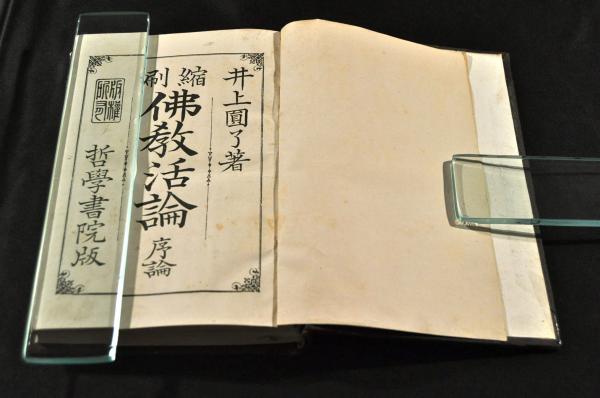 井上圓了著
縮刷
佛教活論
序論
版權所有
哲學書院版